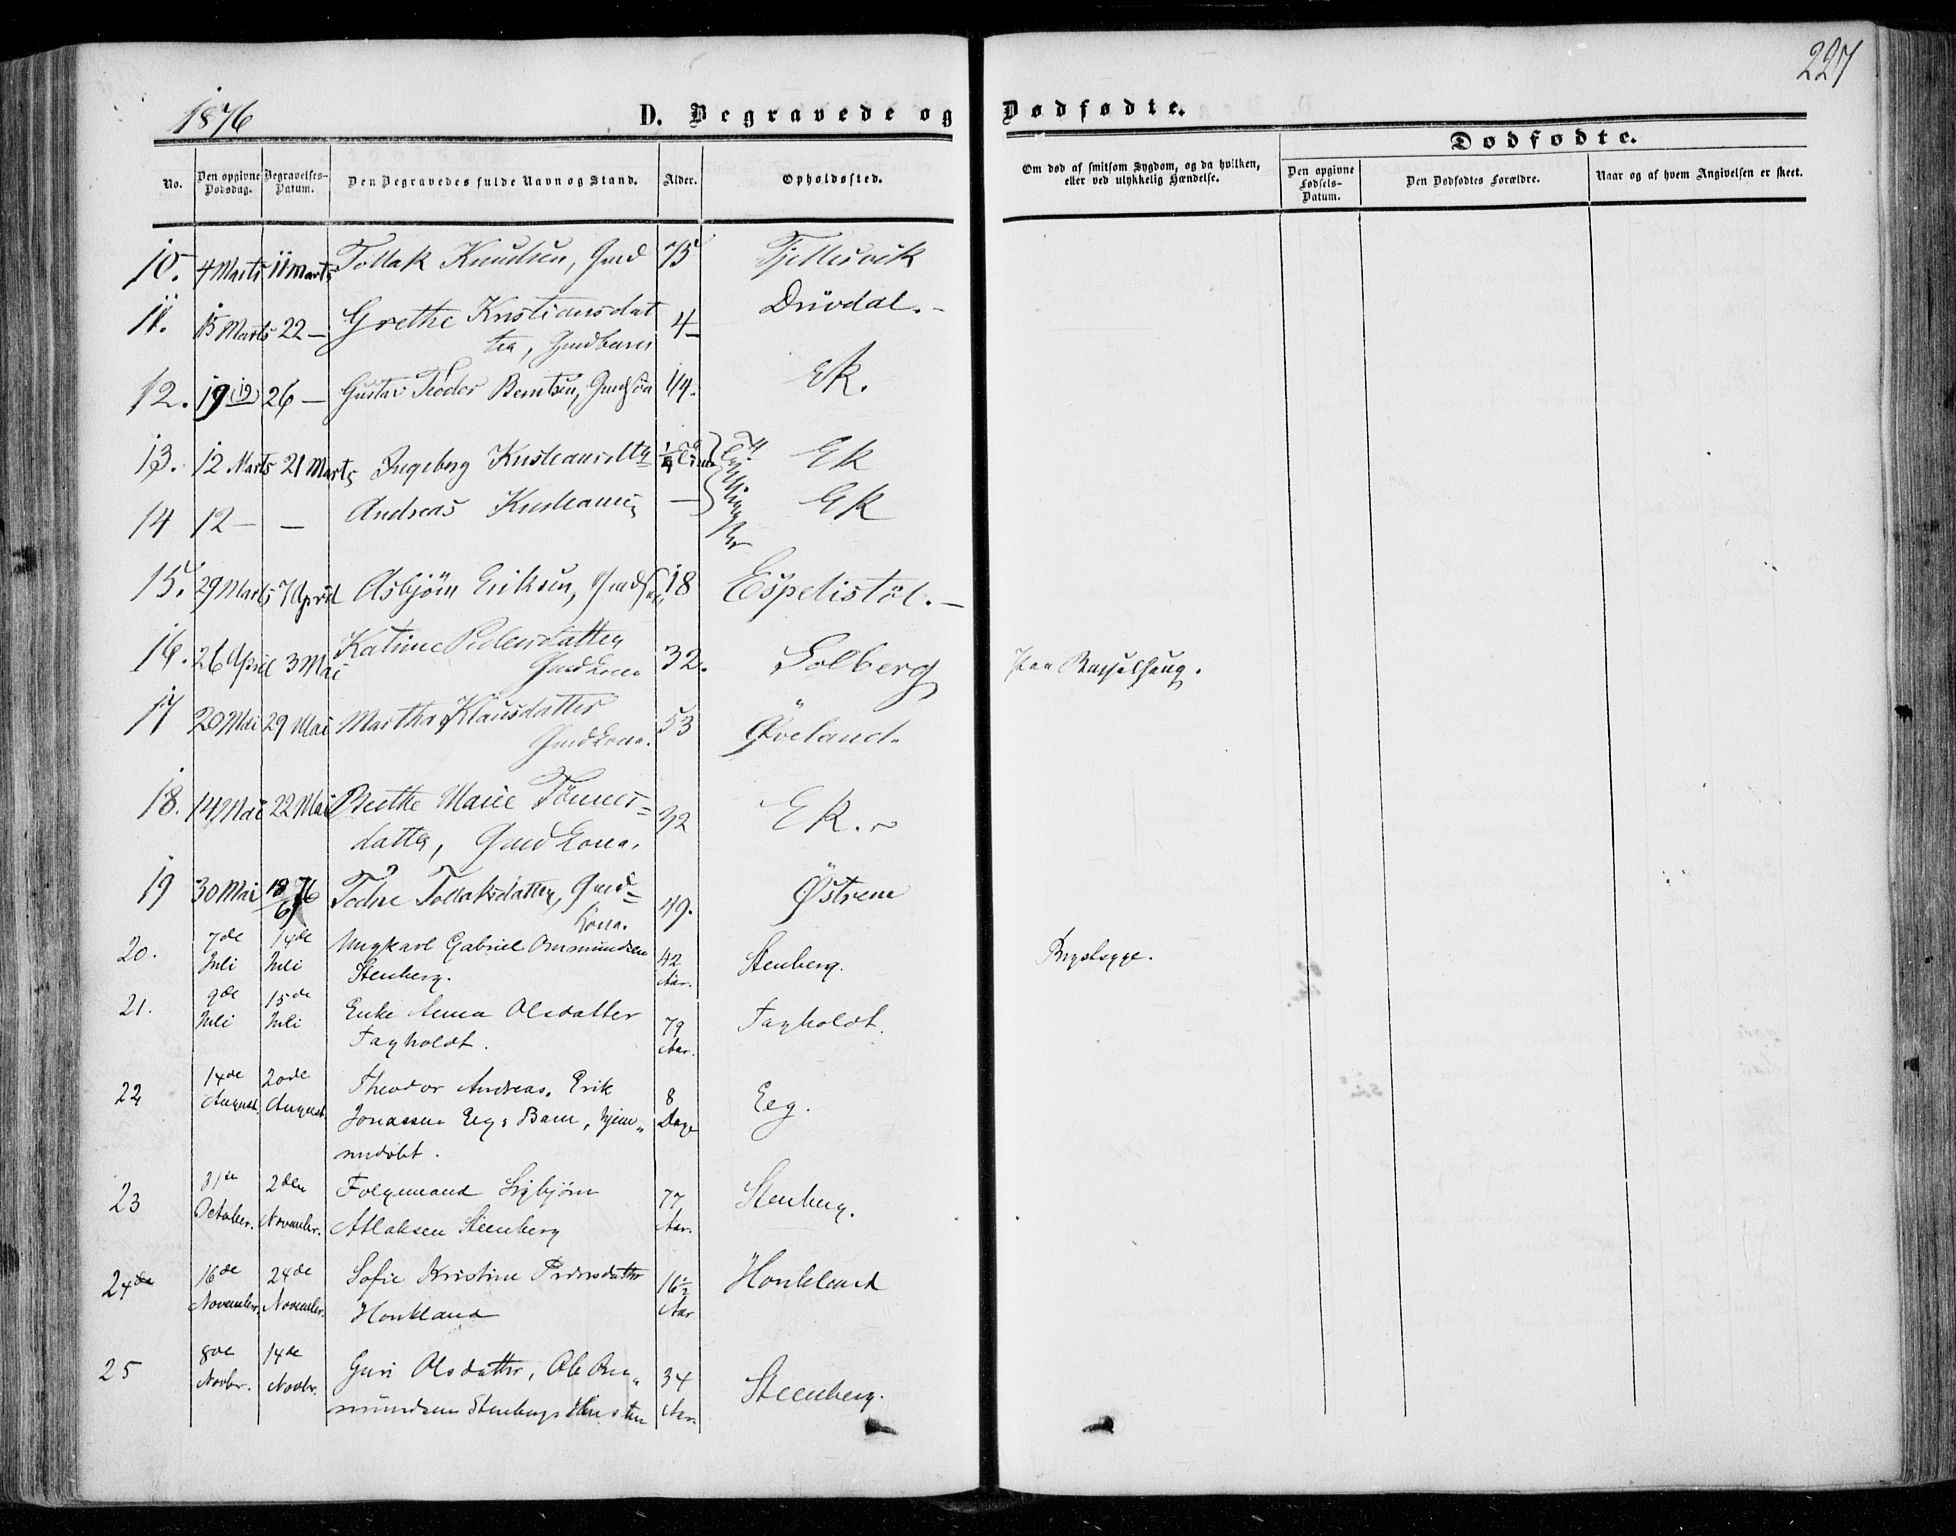 227
1876
D. Begravede og Dødfødte.
Dødfødte.
No.
Den opgivne Dødsdag.
Begravelses-Datum.
Den Begravedes fulde Navn og Stand.
Alder.
Opholdssted.
Om død af smitsom Sygdom, og da hvilken, eller ved ulykkelig Hændelse.
Den opgivne Fødsels-Datum.
Den Dødfødtes Forældre.
Naar og af hvem Angivelsen er skeet.
10. 4 Marts 11 Marts Tollak Knudsen, Gmd 75 Tjellesvik
11. 15 Marts 22 — Grethe Kristiansdat 4 — Drivdal. —
ter, Gmdbarn
12. 19 (12) 26 — Gustav Teodor Berntsen, Gmdsøn 1/4. Ek.
13. 12 Marts 21 Marts Ingeborg Kristiansdtr Ek
14 12 — — Andreas Kristiansen — Ek
15. 29 Marts 7 April Asbjörn Eriksen, Gmdsøn 18 Espelistöl. —
16. 26 April 3 Mai Katrine Pedersdatter 32. Solberg
Gmdkona
17 20 Mai 29 Mai Martha Klausdatter 53 Øveland.
Gmdkona.
18. 14 Mai 22 Mai Berthe Marie Tönnes- 32 Ek.
datter, Gmdkona.
19 30 Mai 18/6 76 Tedne Tollaksdatter, Gmd- 49. Østrem
kona.
20. 7de Juli 14de Juli Ungkarl Gabriel Ommundsen 42 Aar. Stenberg. Brystsyge.
Stenberg.
21. 9de Juli 15de Juli Enke Anna Olsdatter 79 Aar. Fagholdt.
Fagholdt.
22 14de August. 20de August Theodor Andreas. Erik 8 Dage Eeg.
Jonassen Eegs Barn, hjem-
medøbt.
23 31te October. 2den November. Folgemand Sigbjørn 77 Aar. Stenberg.
Atlaksen Steenberg
24de 16de November. 24de November. Sofie Kristine Pedersdatter 16½ Aar Honkland
Honkland
25 8de Novbr. 14de Novbr. Guri Olsdatter, Ole Om- 34 Aar. Steenberg.
mundsen Stenbergs Hustru